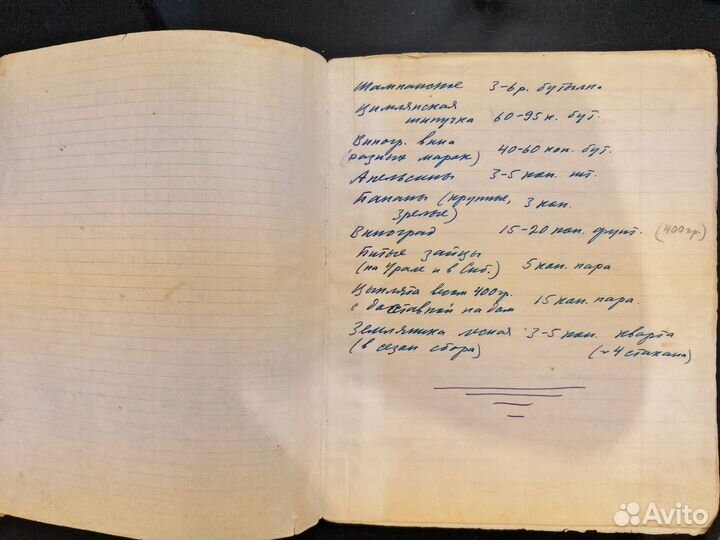 Шампанское 3-6р. бутылка
Цимлянская
шипучка 60-95к. бут.
Виногр. вина
(разных марок) 40-60 коп. бут.
Апельсины 3-5 коп. шт.
Бананы (крупные,
зрелые) 3 коп.
Виноград 15-20 коп. фунт. (400гр.)
Битые зайцы
(на Урале и в Сиб.) 5 коп. пара
Цыплята весом 400гр.
с доставкой на дом 15 коп. пара.
Земляника лесная 3-5 коп. кварта
(в сезон сбора) (~4 стакана)
Avito